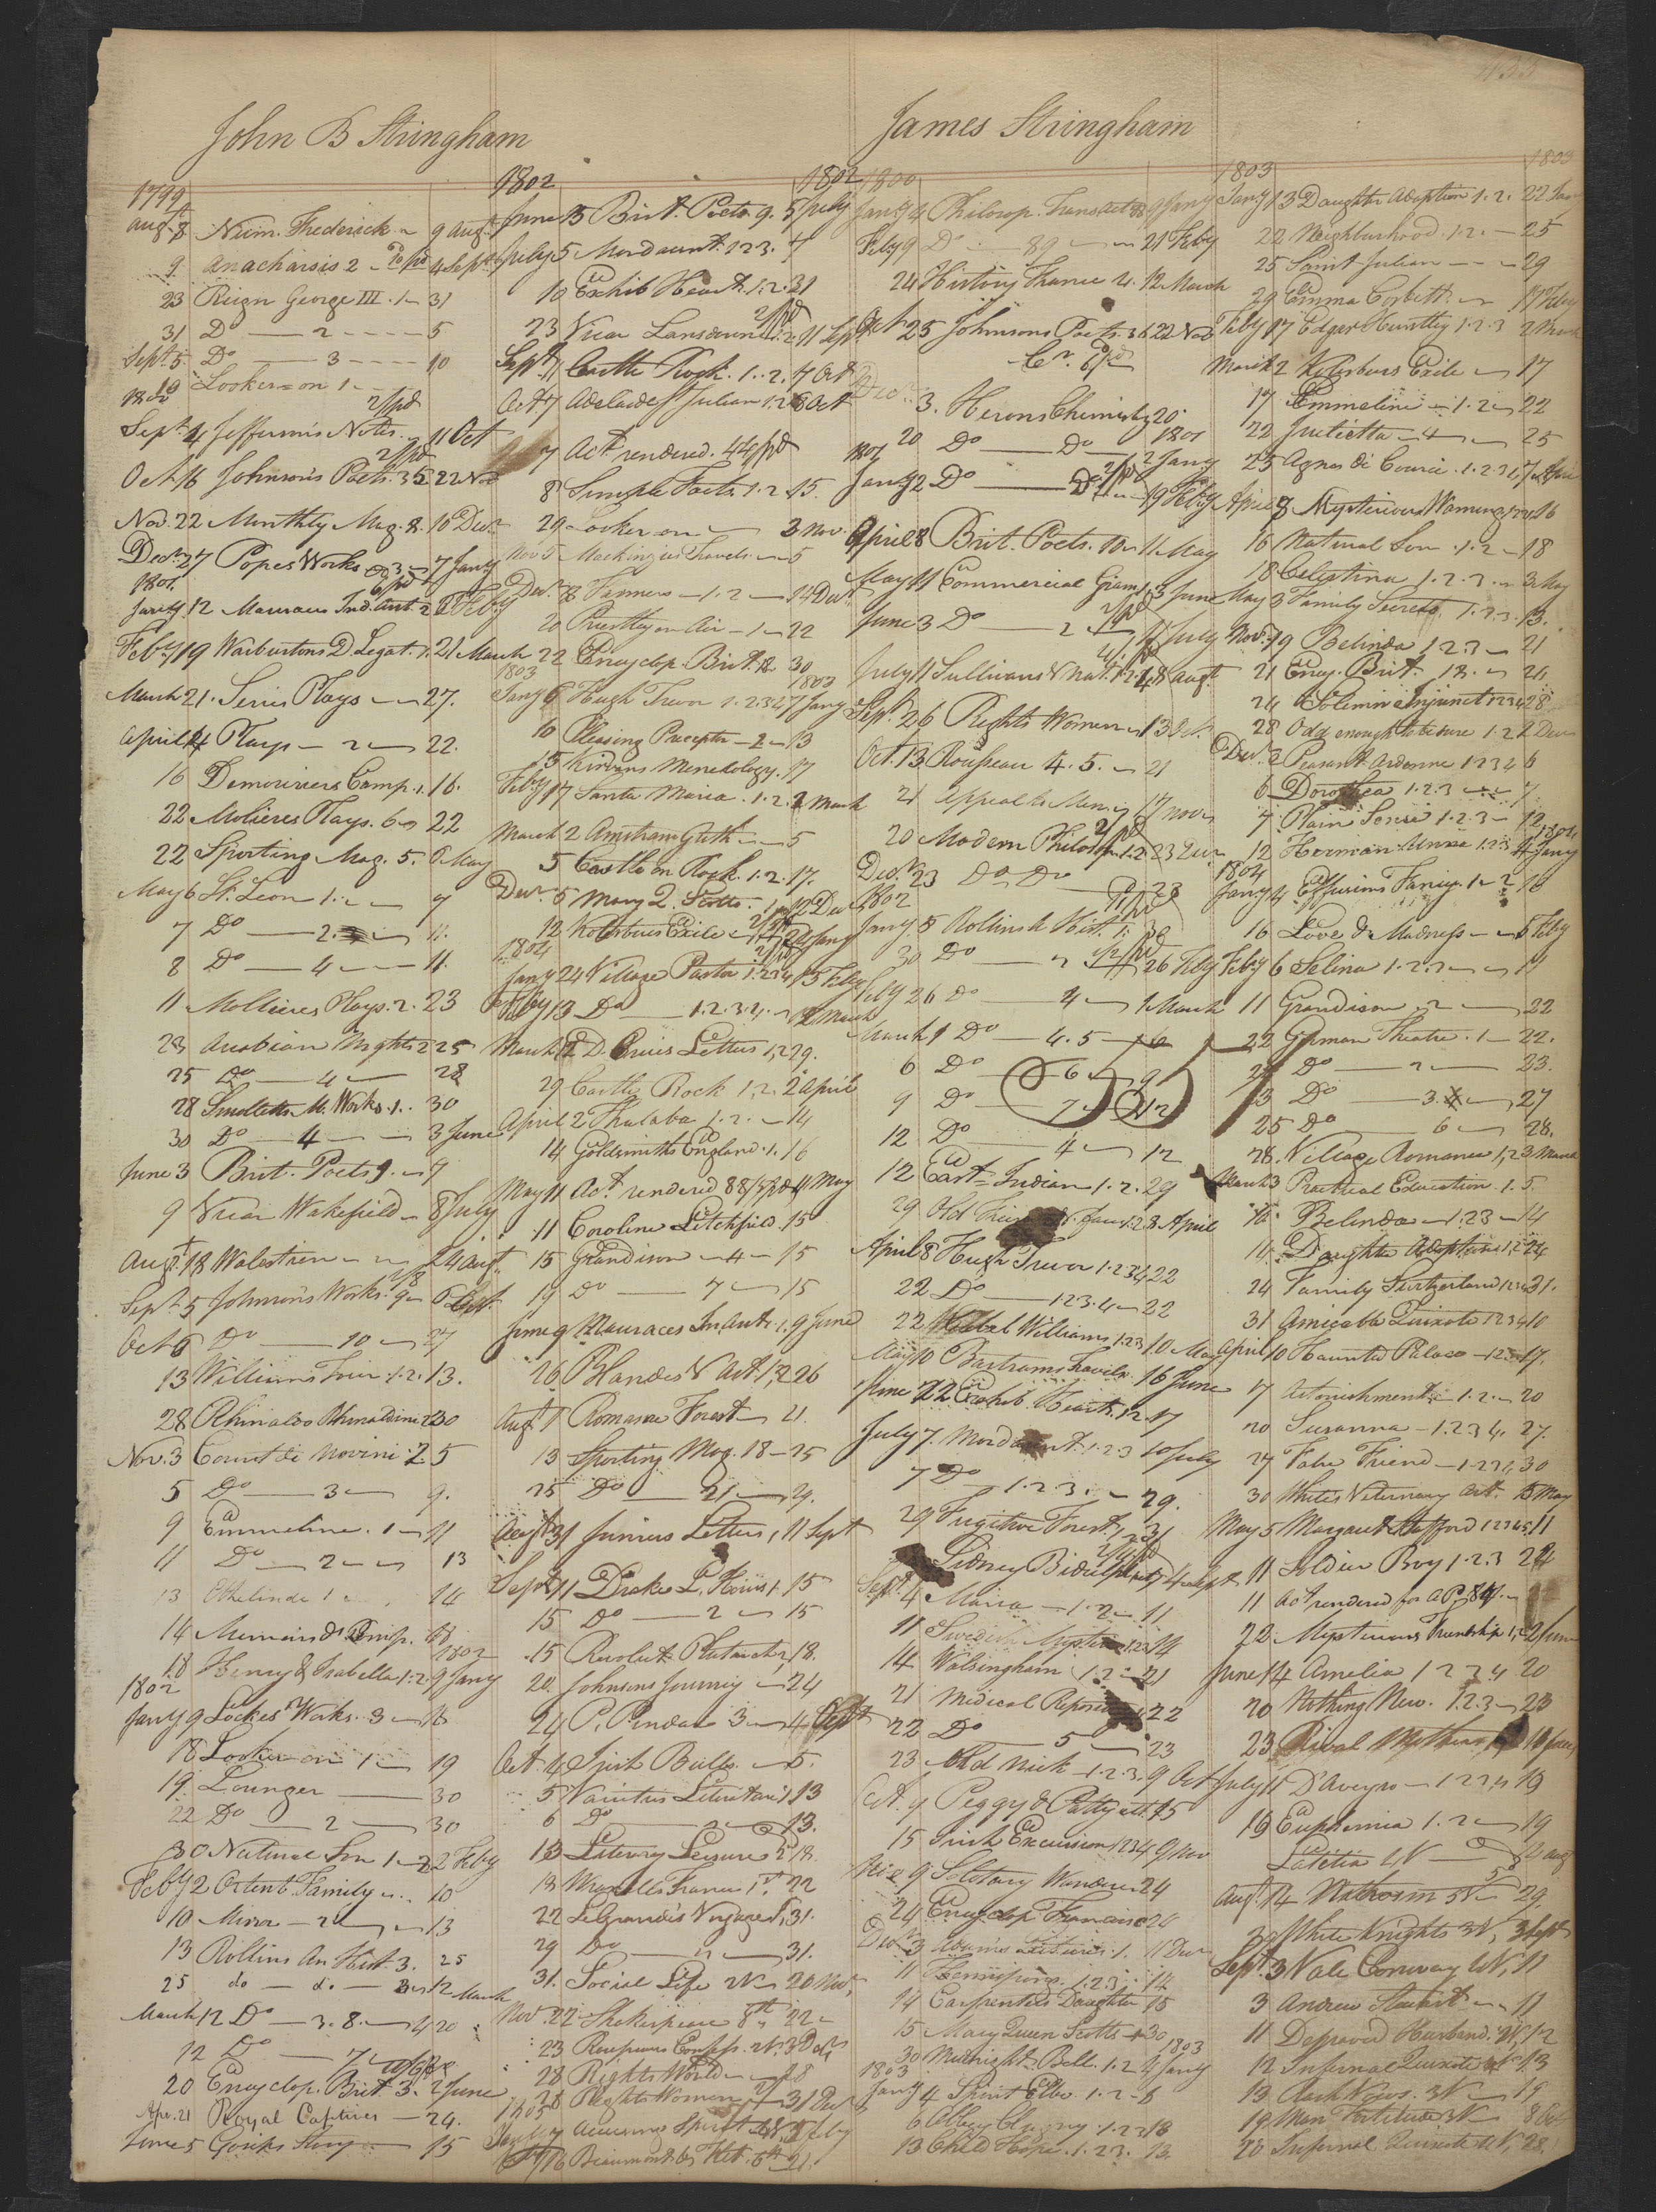 John B Stringham
1799
Aug. 8 Neim. Frederick 9 Aug.
9 Anacharsis 2 4 Sept.
23 Reign George III. 1 31
31 Do 2 5
Sept. 5. Do 3 10
10 Looker-on 1
1800
Sept. 4 Jeffersons Notes. 11 Oct
Oct. 16 Johnsons Poets. 35 22 Nov
Nov. 22 Monthly Mag. 8. 16 Decr.
Decr. 27 Popes Works 7 Jany
1801.
Jany 12 Maurices Ind. Ant. 2 Feby
Feby 19 Warburtons D. Legat. 1. 21 March
March 21. Plays 27.
April 14 Plays 2 22.
16 Demouriers Camp. 1. 16.
22 Molieres Plays. 6 22
22 Sporting Mag. 5. 6 May
May 6 St. Leon 1. 7
7 Do 2. 11.
8 Do 4 11.
11 Mollieres Plays. 2. 23
23 Arabian Nights 2 25
25 Do 4 28
28 Smolletts M. Works. 1. 30
30 Do 4 3 June
June 3 Brit. Poets 9. 9
9 Vicar Wakefield 8 July
Augt. 18 Walestien 24 Augt.
Sept. 5 Johnsons Works. 9 6 Oct.
Oct 6 Do 10 27
13 Williams Tour. 1.2. 13.
28 Rhinaldo Rhinaldini 2 30
Nov. 3 Count di Novini. 2 5
5 Do 3 9.
9 Emmeline. 1 11
11 Do 2 13
13 Ethelinde 1 14
14 Memoirs
1802
18 Henry & Isabella 1.2. 9 Jany
1802
Jany 9 Lockes Works. 3 18
18 Looker on 1 19
19. Lounger 30
22 Do 2 30
30 Natural Son 1 2 2 Feby
Feby 2 Ortenb. Family 10
10 Mirror 2 13
13 Rollins An Hist 3. 25
25 do do 12 March
March 12 Do 3. 8. 20
12 Do 7
20 Encyclop. Brit 3. 2 June
Apr. 21 Royal Captives 24.
June 5 Story 15
1802 1802
June 3 Brit. Poets. 9. 5 July
July 5 Mordaunt. 1 2 3. 7
10 Exhib Heart. 1.2. 21
23 Vicar Lansdown 1.2 11 Sept
Sept. 11 Castle Rock. 1.2. 7 Oct
Oct 7 Adelaide St Julian 1.2 8 Oct
7 Act rendered. 44/ pd
8 Simple Facts. 1.2. 15.
29 Looker on 3 Nov
Nov 5 Mackinzies Travels 5
Decr. 8 Farmers 1.2 14 Decr.
20 Priestly on Air 1 22
22 Encyclop. Brit. 12 30
1803 1803
Jany 6 Hugh Trevor 1.2.3.4 7 Jany
10 Pleasing Preceptor 2 13
13 Kirwans Menedology. 17
Feby 17 Santa Maria. 1.2.3 2 March
March 2 5
5 Castle on Rock. 1.2. 17.
Decr. 5 Mary Q. Scotts. 12 Decr
12 Kotzebues Exile
1804
Jany 24 Village Pastor 1.2.3.4 13 Feby
Feby 13 Do 1.2.3.4. 2 March
March 12 Letters 1,2 29.
29 Castle Rock 1, 2. 2 April
April 2 Thalaba 1.2. 14
14 Goldsmiths England. 1. 16
May 11 Act. rendered 88/ 11 May
11 Caroline Litchfield. 15
15 Grandison 4 15
19 Do 7 15
June 9 Mauraces In. Ant. 1. 9 June
26 Brandes N Art 1,2 26
Augt. 1 Romance Forest 21.
13 Sporting Mag. 18 25
25 Do 21 29.
Augt 31 Juniers Letters, 1 11 Sept
Sept. 11 Drakes L. Hours 1. 15
15 Do 2 15
15 Revolut. Plutarch 2, 18.
20. Johnsons Journey 24
24 P. Pindar 3 4
Oct. 4 Irish Bulls. 5.
5 Varities Literature 1, 13
6 Do 2 13.
13 Literary Leisure 2 18.
18 France 1st. 22
22 LeGrandes Voyages 1, 31.
29 Do 2 31.
31. Social Life 2N 20 Nov.
Nov. 22 Shakespeare 8th 22
23 Rousseaus Confess. 2N. 3 Decr
28 Rights World 28
28 Rights Women 31 Decr
1805
Jany 7 Accusing Spirit Feby
16 Beaumont & Flet. 6th 21.
James Stringham
1800
Jany 4 Philosop. Transact. 88 9 Jany
Feby 9 Do 89 21 Feby
24 History France 4. 12 March
Oct 25 Johnsons Poets. 36 22 Nov
Decr. 3. Herons Chemistry 20.
20 Do Do 1801
1801 2 Jany
Jany 2 Do Do 19 Feby
April 8 Brit. Poets. 10 11 May
May 11 Commercial Gram 1 3 June
June 3 Do 2 11 July
July 11 Sullivans V. Nat. 1.2. 8 Augt.
Sept. 26 Rights Women 13 Oct.
Oct. 13 Rousseau 4. 5. 21
21 Appeal to Men. 17 Nov
20 Modern Philosp. 1.2 23 Decr
Decr. 23 Do Do 28
1802
Jany 5 Rollins H Hist. 1. 30
30 Do 26 Feby
Feby 26 Do 4 1 March
March 1 Do 4. 5 6
6 Do 6 9
9 Do 7 12
12 Do 4 12
12 East Indian 1.2. 29
29 Old 8 April
April 8 Hugh Trevor 1.2.3.4 22
22 Do 1 2 3. 4 22
22 Williams 1.2.3 10 May
May 10 Bartrams Travels. 16 June
June 22 Exhib. Heart. 1.2. 17
July 7. Mordaunt. 1.2.3 10 July
7 Do 1.2.3. 29.
29 Fugitive Forest. 1 2 31
Sidney Bidulph 4 Sept
Sept. 4 Maria 1.2 11
11 Swedish 14
14 Walsingham 1.2 21
21 Medical 22
22 Do 5 23
23 Old Nick 1.2.3. 9 Oct
Oct. 9 Peggy & Patty 15
15 Irish Excursion 1 2 3 4 9 Nov
Nov. 9 Solotary Wanderer 24
24 Encyclop. Francaise 24
Decr. 3 11 Decr
11 1.2.3. 14
14 Carpenters Daughter 15
15 Mary Queen Scotts 30
1803
30 Midnight Bell. 1.2 4 Jany
1803
Jany 4 Spirit Elbe. 1.2 6
6 Abbey Clugny. 1.2.3 13
13 Child Hope. 1.2.3. 13.
1803 1803
Jany 13 Daughter Adoption 1.2. 22 Jan
22 Neighburhood. 1.2. 25
25 Saint Julian 29
29 Emma Corbett. 17 Feby
Feby 17 Edgar Huntley 1.2.3 2 March
March 2 Kotzebues Exile 17
17 Emmeline 1.2 22
22 Julietta 4 25
25 Agnes di Courci. 1.2.3.4, 7 April
April 8 Mysterious Warning 16
16 Natural Son. 1.2 18
18 Celestina 1.2.3. 3 May
May 3 Family Secrets 1.2.3. 13.
Nov. 19 Belinda 1 2 3 21
21 Ency. Brit. 12. 24
24 Solemn Injunct 1 2 3 4 28
28 Odd enough to be sure 1.2 2 Decr
Decr. 2 Peasant Ardenne 1 2 3 4 6
6 Dorothea 1.2.3 7.
7 Plain Sense 1.2.3 12
12 Herman Unna 1.2.3 4 Jany
1804
Jany 4. Effusions Fancy. 1 2 16
16 Love & Madness 5 Feby
Feby 6 Selina 1.2.3 11
11 Grandison 2 22
22 German Theatre. 1 22.
22 Do 2 23.
23 Do 3. 27
25 Do 6 28.
28. Village Romance 1,2 3 March
March 3 Practical Education. 1. 5.
Belinda 1.2 3 14
14. Daughter Adoption 1, 2 24
24 Family Switzerland 1 2 3 4 31.
31 Amicable Quixote 1 2 3 4 10
April 10 Haunted Palace 1 2 3 17.
17 Astonishment 1.2. 20
20 Susanna 1.2 3 4. 27.
27 False Friend 1.2 3 4, 30
30 Whites Veternary Art. 5 May
May 5 Margaret Stafford 1 2 3 4 5. 11
11 Soldier Boy 1.2.3 24
11 Act rendered for
22. Mysterious Friendship 1, 2 2 June
June 14 Amelia 1 2 3 4 20
20 Nothing New. 1.2.3 23
23 Rival Mothers
July 11 D'Aveyro 1 2 3 4 19
19 Euphemia 1. 2 19
Latitia 2N
Augt. 14 5N 29.
30 White Knights 3N, 3 Sept
Sept. 3 Vale Conway 4N, 11
3 Andrew Stewart 11
11 Depraved Husband. 2N, 12
12 Infernal Quixote 13
13 3N 19
19 Man Fortitude 3N 8 Oct
20 Infernal Quixote 4N, 28.